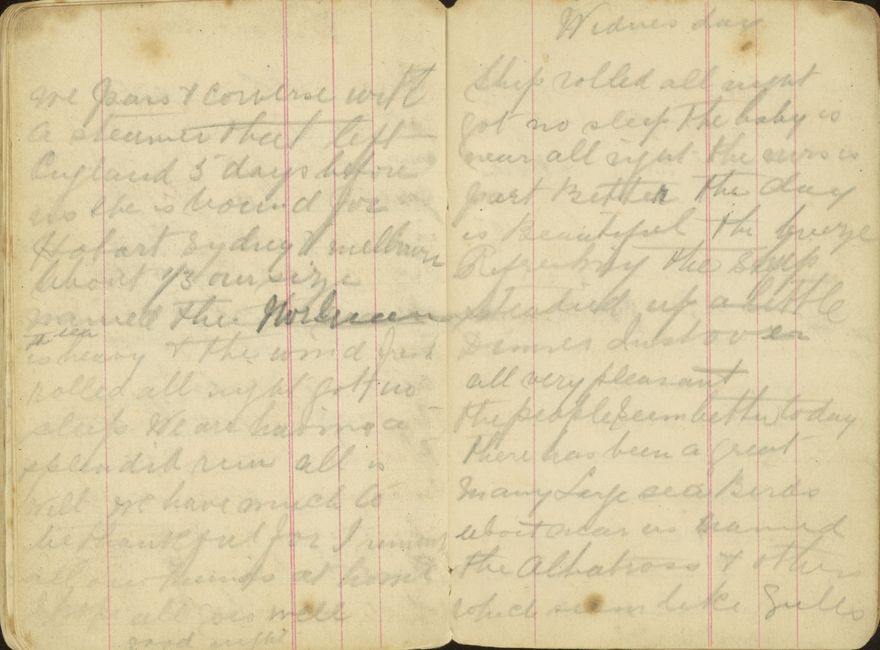 we pass & converse with
a steamer that left
England 5 days before
us she is bound for
Hobart Sydney & melbourn
about 1/3 our size
named the
the sea
is heavy & the wind fresh
rolled all night gott no
sleep We are having a
splendid run all is
well we have much to
be thankful for I
all our friends at home
hope all goes well
good night
Wednesday
Ship rolled all night
got no sleep the baby is
near all night the nurs is
part Better The day
is Beautiful the breeze
Refreshing the Ship
steadied up a little
Dinner Just over
all very pleasant
the people seem better today
there has been a great
many Large sea Birds
about near us named
the Albatross & others
which seem like Gulls